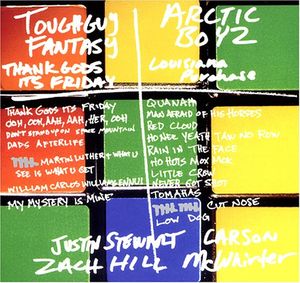 TOUGHGUY
FANTASY
THANK GODS
ITS FRIDAY
ARCTIC
BOYZ
Louisiana
Purchase
THANK GODS ITS FRIDAY
OOH, OOH, AAH, AAH, HER, OOH
DON'T STAND UP ON SPACE MOUNTAIN
DADS AFTERLIFE
MARTIN LUTHER + WHAT U
SEE IS WHAT U GET
WILLIAM CARLOS WILLIAMS
MY MYSTERY IS MINE
QUANAH
MAN AFRAID OF HIS HORSES
RED CLOUD
YEATH TAW NO ROW
RAIN IN THE FACE
LITTLE CROW
NEVER GOT SHOT
TOMAHAS
CUT NOSE
LOW DOG
JUSTIN STEWART
ZACH HILL
CARSON
McWhirter